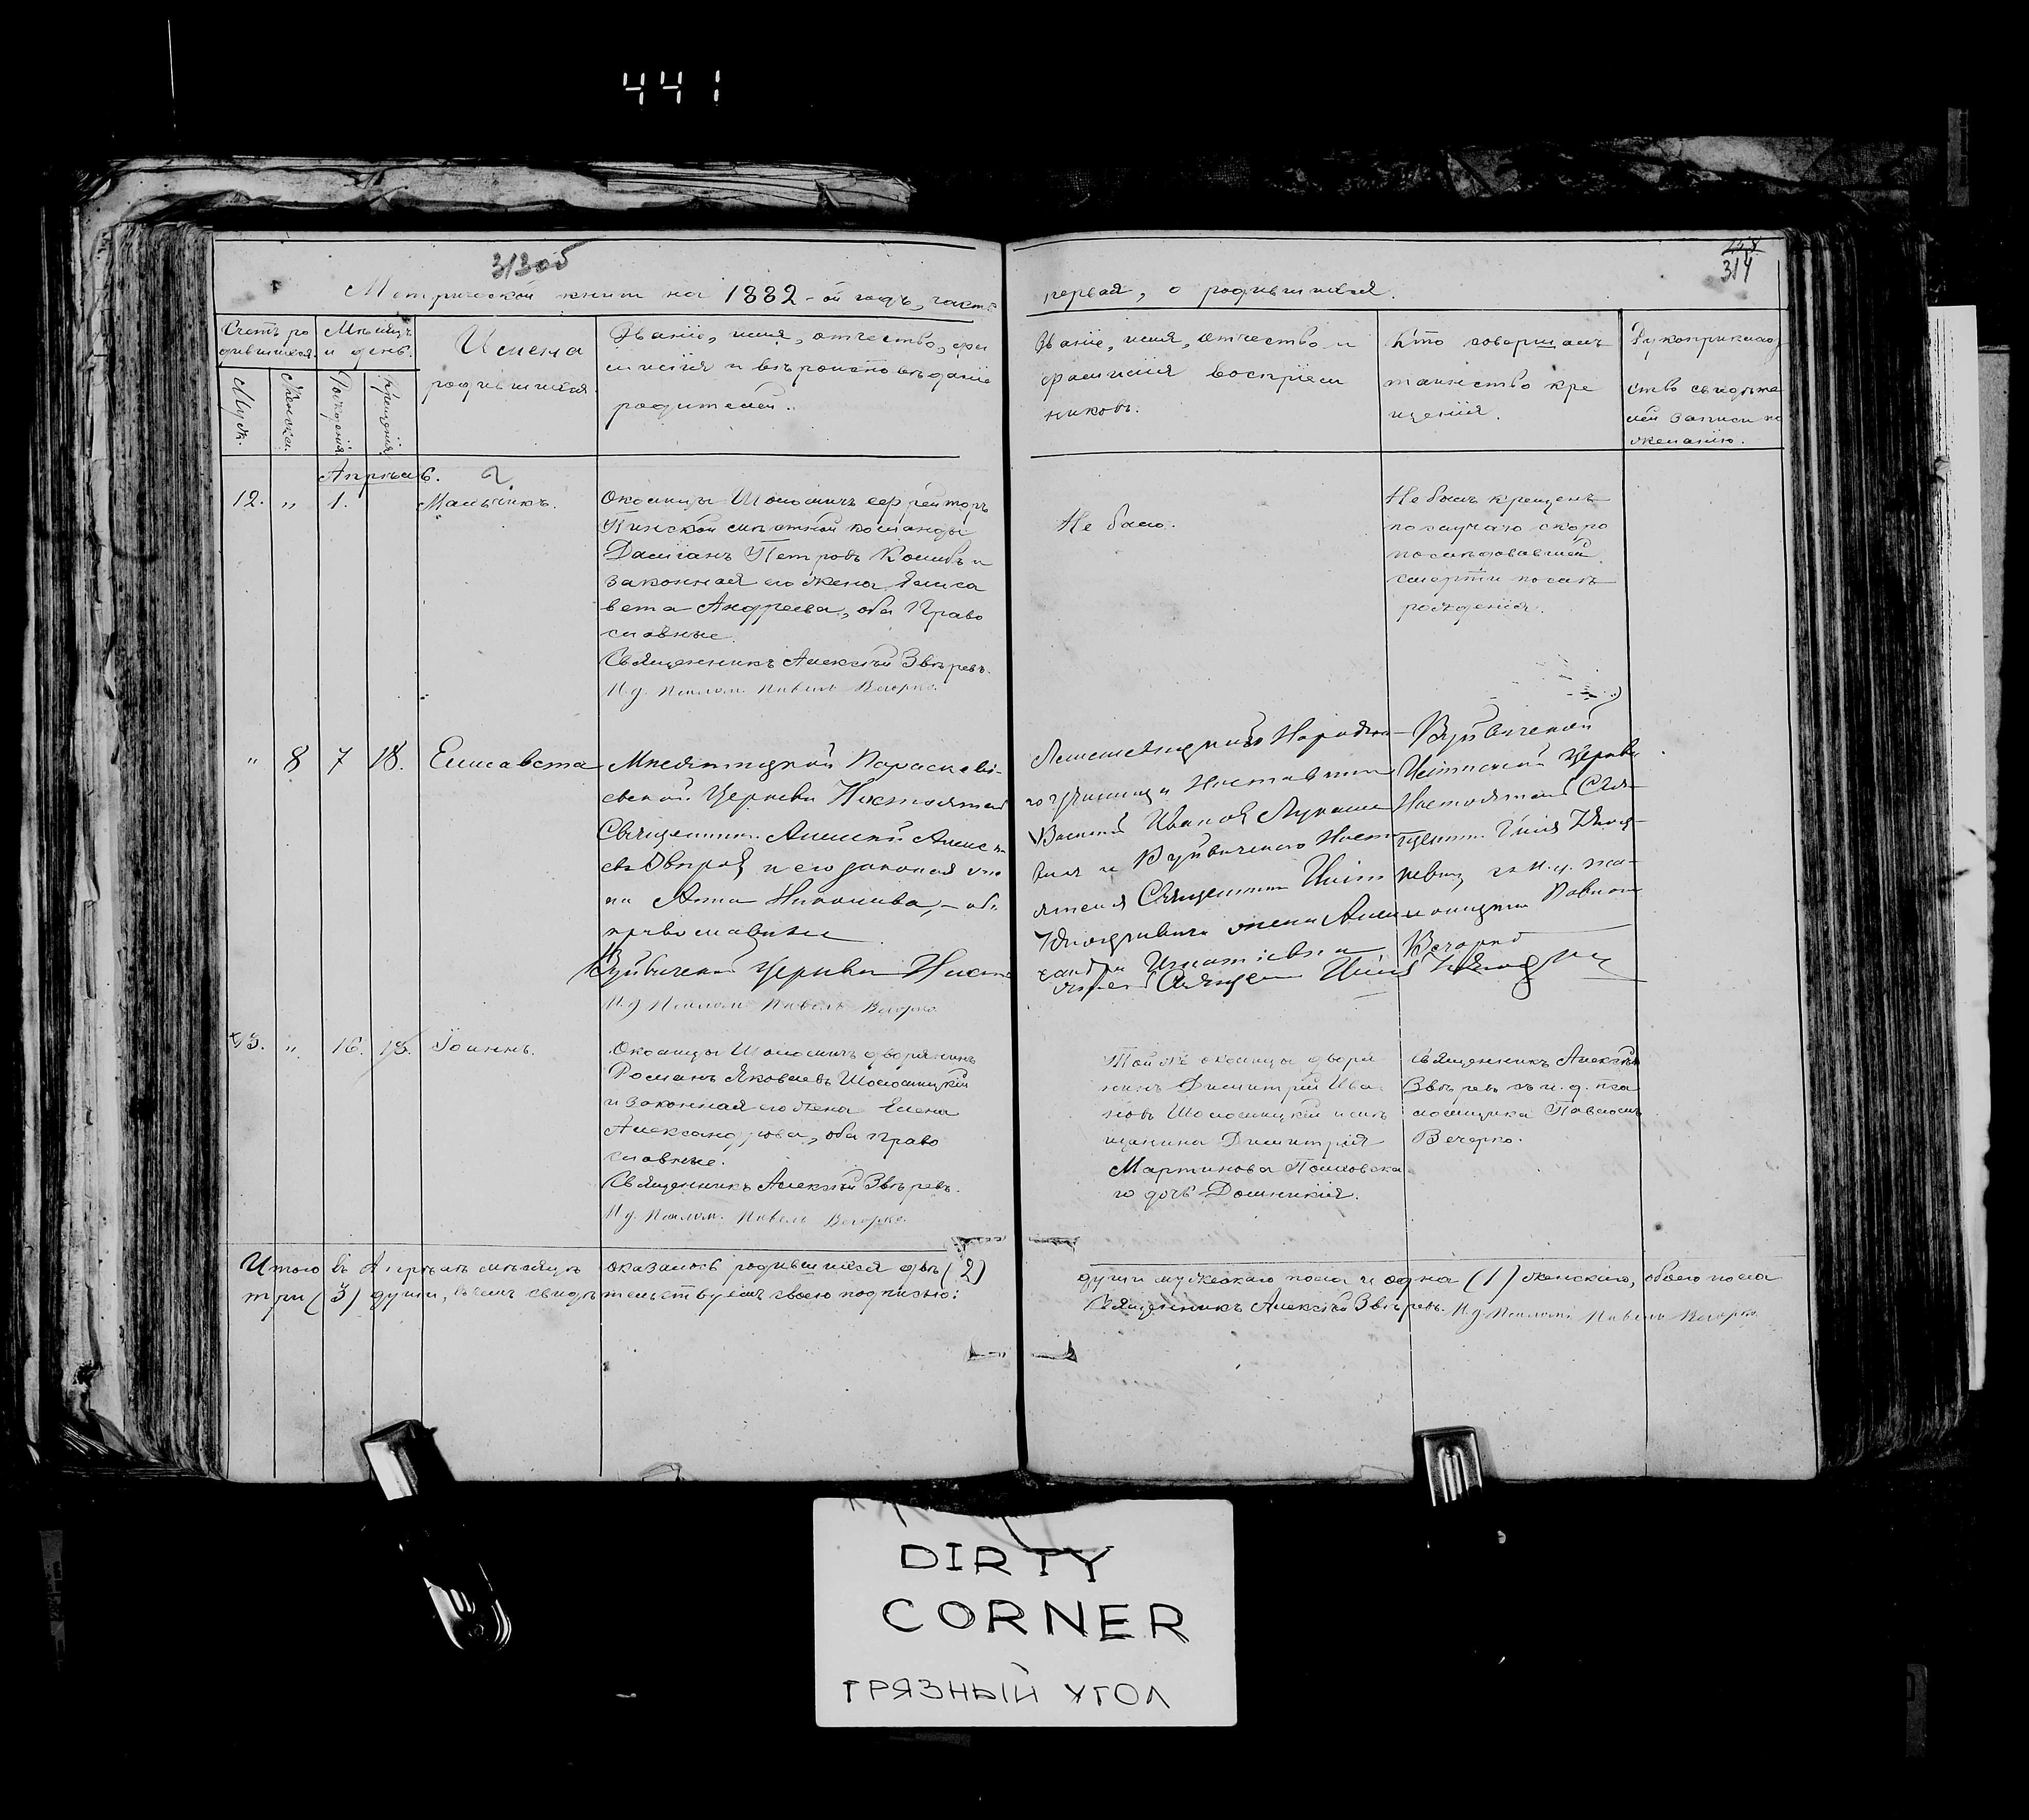 441
313об
314
Метрической книги на 1882-ой годъ, часть
первая, о родившихся.
Счетъ ро
дившихся.
Мѣсяцъ
и день.
Муж.
Женска.
Рожденія
Крещенія
Имена
родившихся.
Званіе, имя, отчество, фа
милія и вѣроисповѣданіе
родителей.
Званіе, имя, отчество и
фамилія воспріем
никовъ.
Кто совершалъ
таинство кре
щенія.
Рукоприклад
ство свидѣте
лей записи по
желанію.
Апрѣль.
12. „ 1. Мальчикъ.
Околицы Шоломичъ ефрейторъ
Пинской мѣстной команды
Даміанъ Петровъ и
законная его жена Елиса
вета Андреева, оба Право
славные.
Священникъ Алексѣй Звѣревъ.
И.д. Псалом. Павелъ Вечорко.
Не было.
Не былъ крещенъ
по случаю скоро
послѣдовавшей
смерти послѣ
рожденія.
„ 8 7 18. Елисавета
Параскеві-
евской Церкви Настоятель
Священникъ Алексѣй Алексѣ
евъ Звѣревъ и его законная же
на Анна, — оба
православные
Церкви Насто
И.д Псалом. Павелъ Вечорко.
Народна
го училища Наставникъ
Василій Ивановъ
и Насто
ятеля Священника
жена Алек
сандра Игнатіевна
ятель Священ
Церкви
Настоятель Свя-
щенникъ
съ и. д. пса-
ломщика Павломъ
Вечорко
13. „ 16. 18. Іоаннъ.
Околицы Шоломичъ дворянинъ
Романъ Яковлевъ Шоломицкій
и законная его жена Елена
Александрова, оба Право
славные.
Священникъ Алексѣй Звѣревъ.
И.д. Псалом. Павелъ Вечорко.
Той же околицы дворя
нинъ Димитрій Ива
новъ Шоломицкій и мѣ
щанина Димитрія
Мартинова
го дочь Домникія.
Священникъ Алексѣй
Звѣревъ съ и. д. пса
ломщика Павломъ
Вечорко.
Итого въ Апрѣлѣ мѣсяцѣ оказалось родившихся двѣ (2)
души мужескаго пола и одна (1) женскаго, обоего пола
три (3) души, въ чемъ свидѣтельствуемъ своею подписью:
Священникъ Алексѣй Звѣревъ. И.д. Псалом. Павелъ Вечорко.
DIRTY
CORNER
ГРЯЗНЫЙ УГОЛ